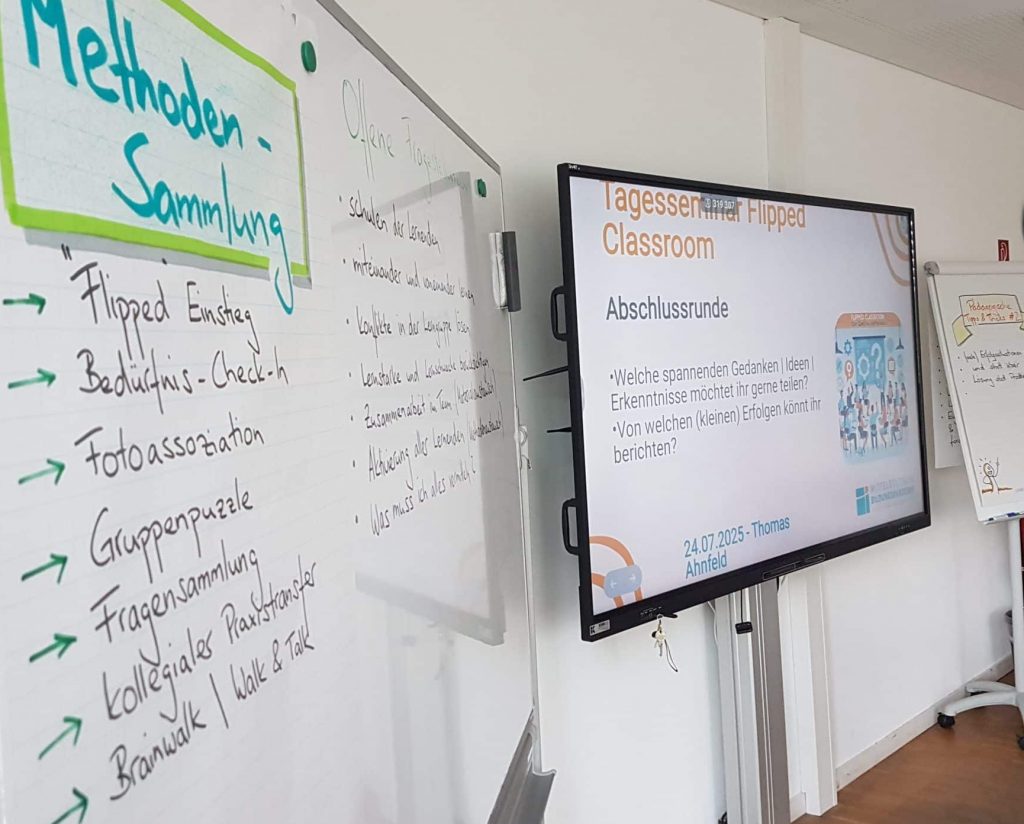 Methoden -
Sammlung
"Flipped" Einstieg
Bedürfnis-Check-In
Fotoassoziation
Gruppenpuzzle
Fragensammlung
kollegialer Praxistransfer
Brainwalk | Walk & Talk
Offene
• schulen der Lernenden
• miteinander und voneinander lernen
• Konflikte in der Lerngruppe lösen
• Lernstarke und
• Zusammenarbeit im Team
• Aktivierung aller Lernenden
• "Was muss ich alles
Tagesseminar Flipped
Classroom
Abschlussrunde
•Welche spannenden Gedanken | Ideen |
Erkenntnisse möchtet ihr gerne teilen?
•Von welchen (kleinen) Erfolgen könnt ihr
berichten?
FLIPPED CLASSROOM
24.07.2025 - Thomas
Ahnfeld
Pädagogische
Tipps & Tricks